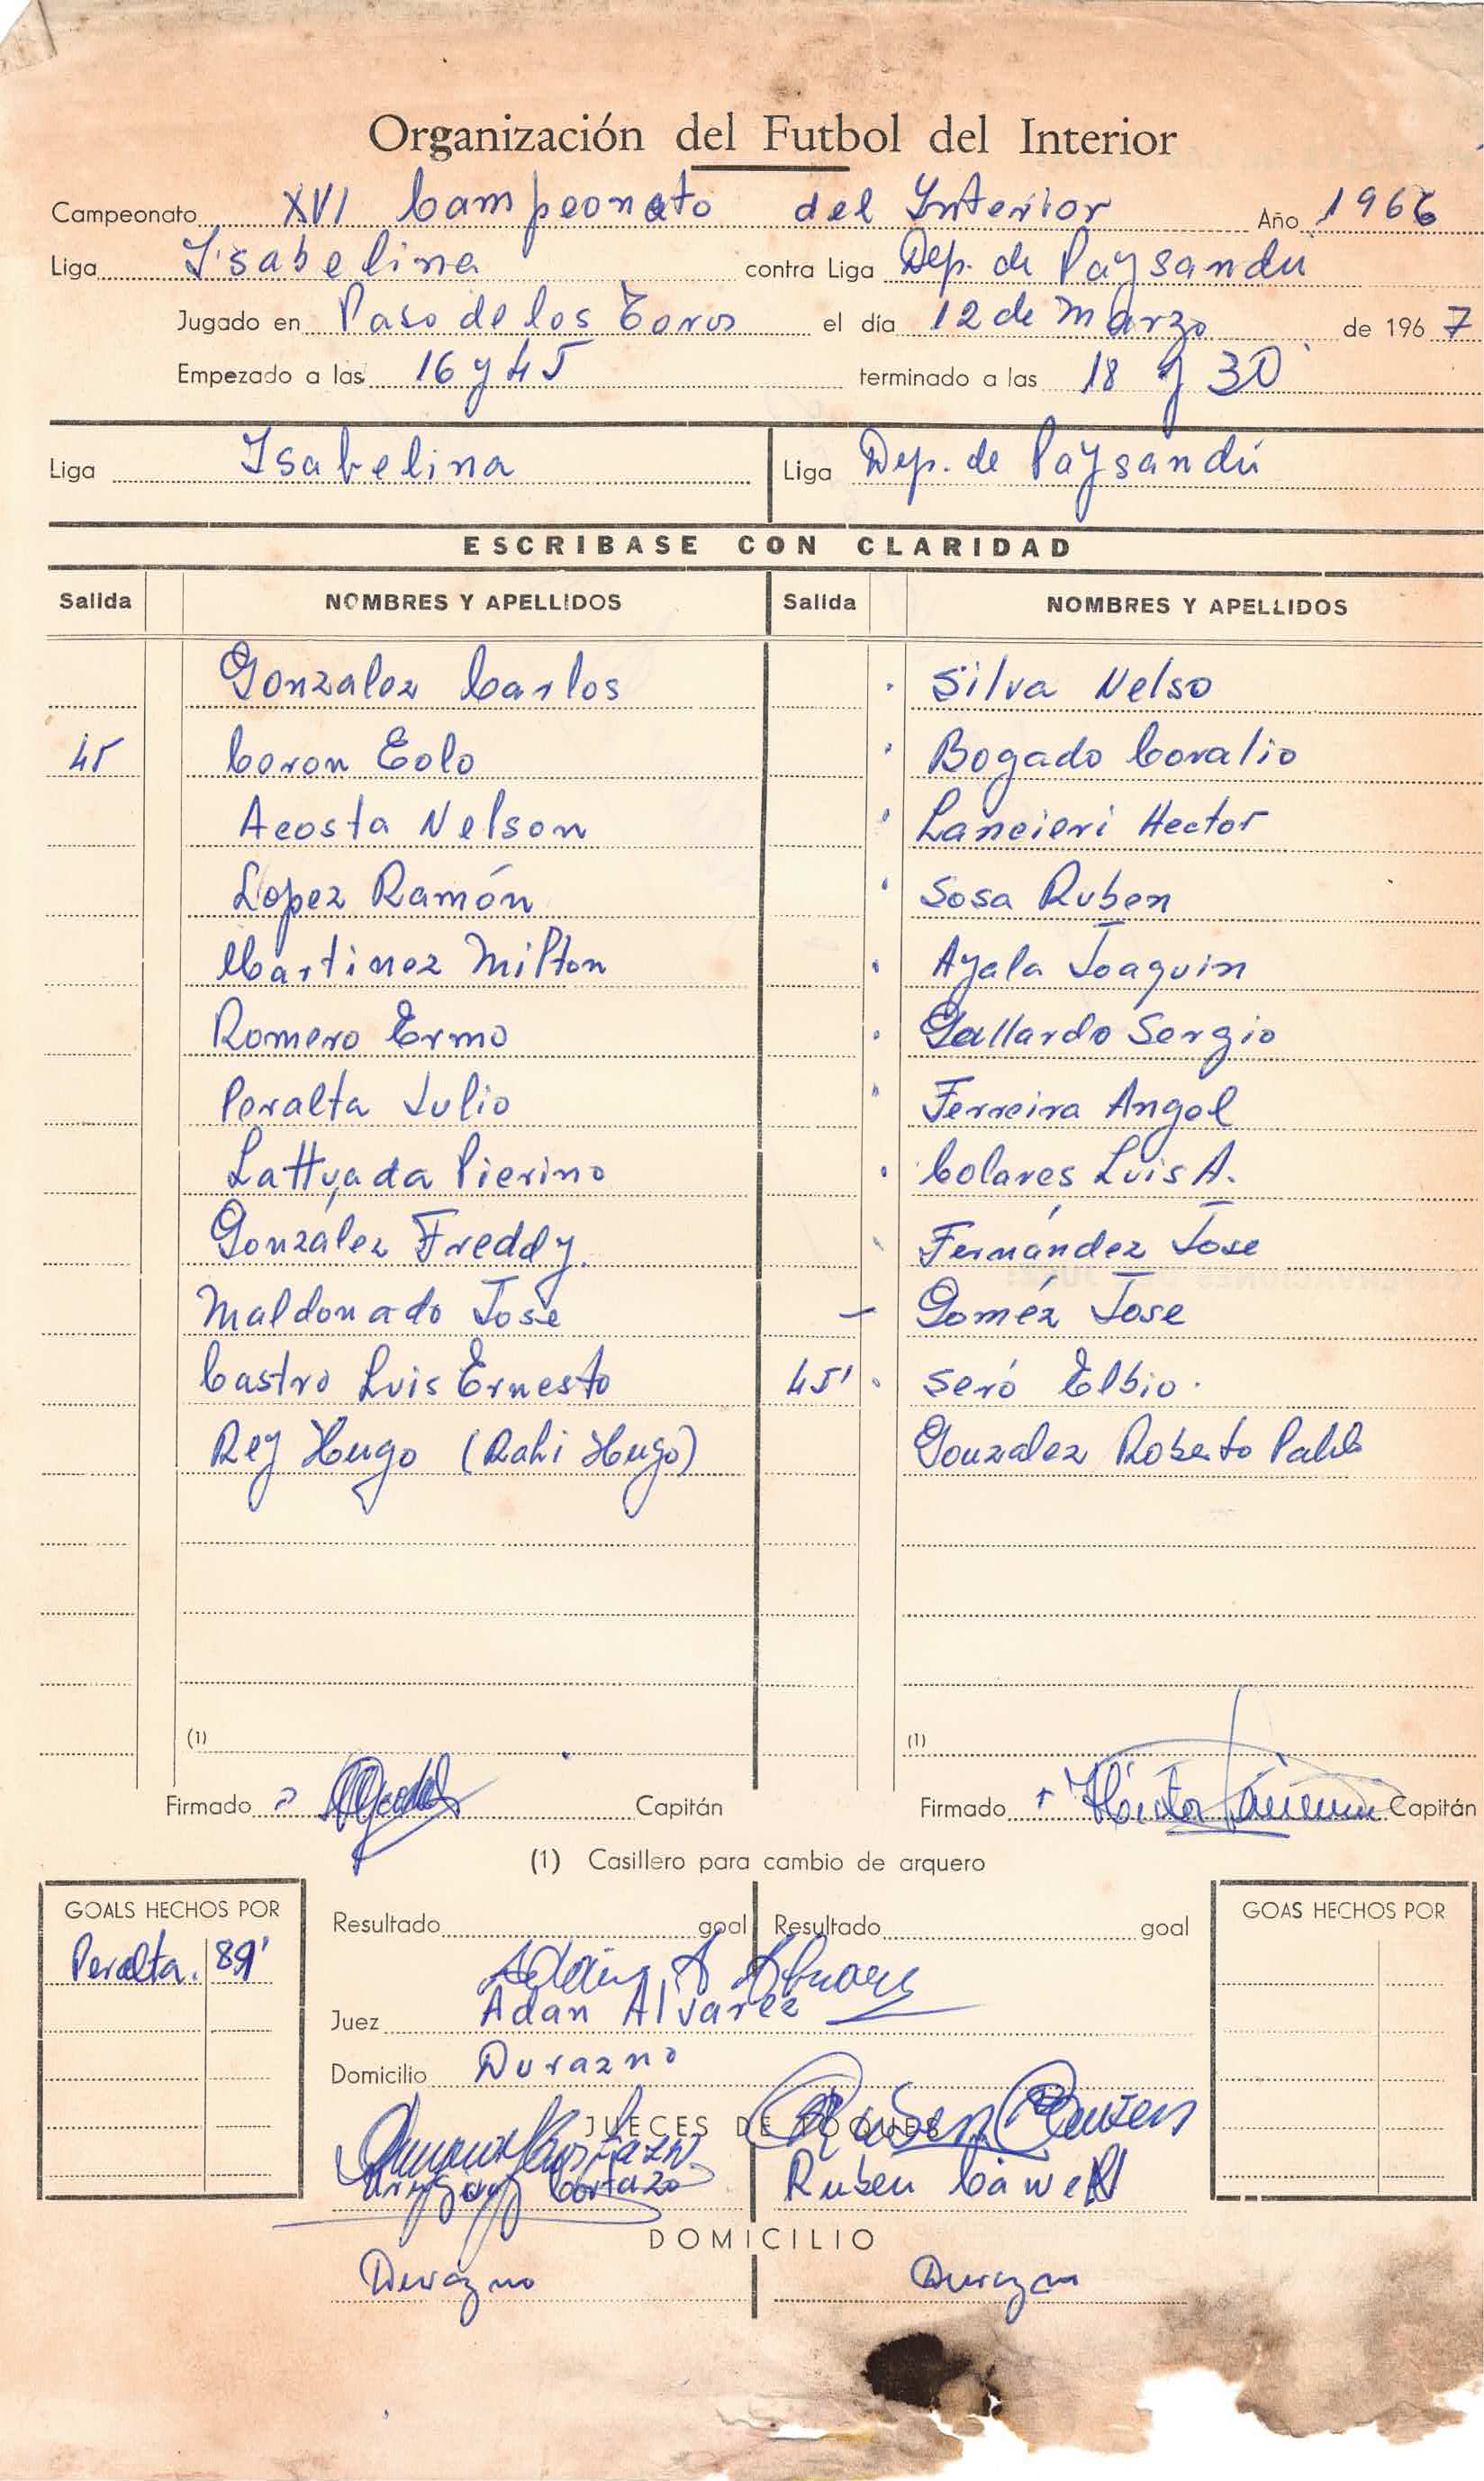 Organización del Futbol del Interior
Campeonato XVI Campeonato del Interior Año 1966
Liga Isabelina contra Liga Dep. de Paysandú
Jugado en Paso de los Toros el día 12 de Marzo de 1967
Empezado a las 16 y 45 terminado a las 18 y 30
Liga Isabelina Liga Dep. de Paysandú
ESCRIBASE CON CLARIDAD
Salida NOMBRES Y APELLIDOS Salida NOMBRES Y APELLIDOS
Gonzalez Carlos Silva Nelso
45 Coron Eolo Bogado Coralio
Acosta Nelson Lancieri Hector
Lopez Ramón Sosa Ruben
Martinez Milton Ayala Joaquin
Romero Ermo Gallardo Sergio
Peralta Julio Ferreira Angel
Lattuada Pierino Colares Luis A.
González Freddy. Fernández Jose
Maldonado Jose — Goméz Jose
Castro Luis Ernesto 45' Seró Elbio.
Rey Hugo (Rahi Hugo) Gonzalez Roberto Pablo
(1) (1)
Firmado Capitán Firmado Héctor Capitán
(1) Casillero para cambio de arquero
GOALS HECHOS POR Resultado goal Resultado goal GOAS HECHOS POR
Peralta. 89'
Juez Adan Alvarez
Domicilio Durazno
JUECES DE TOQUES
Cortazo Ruben
DOMICILIO
Durazno Durazno